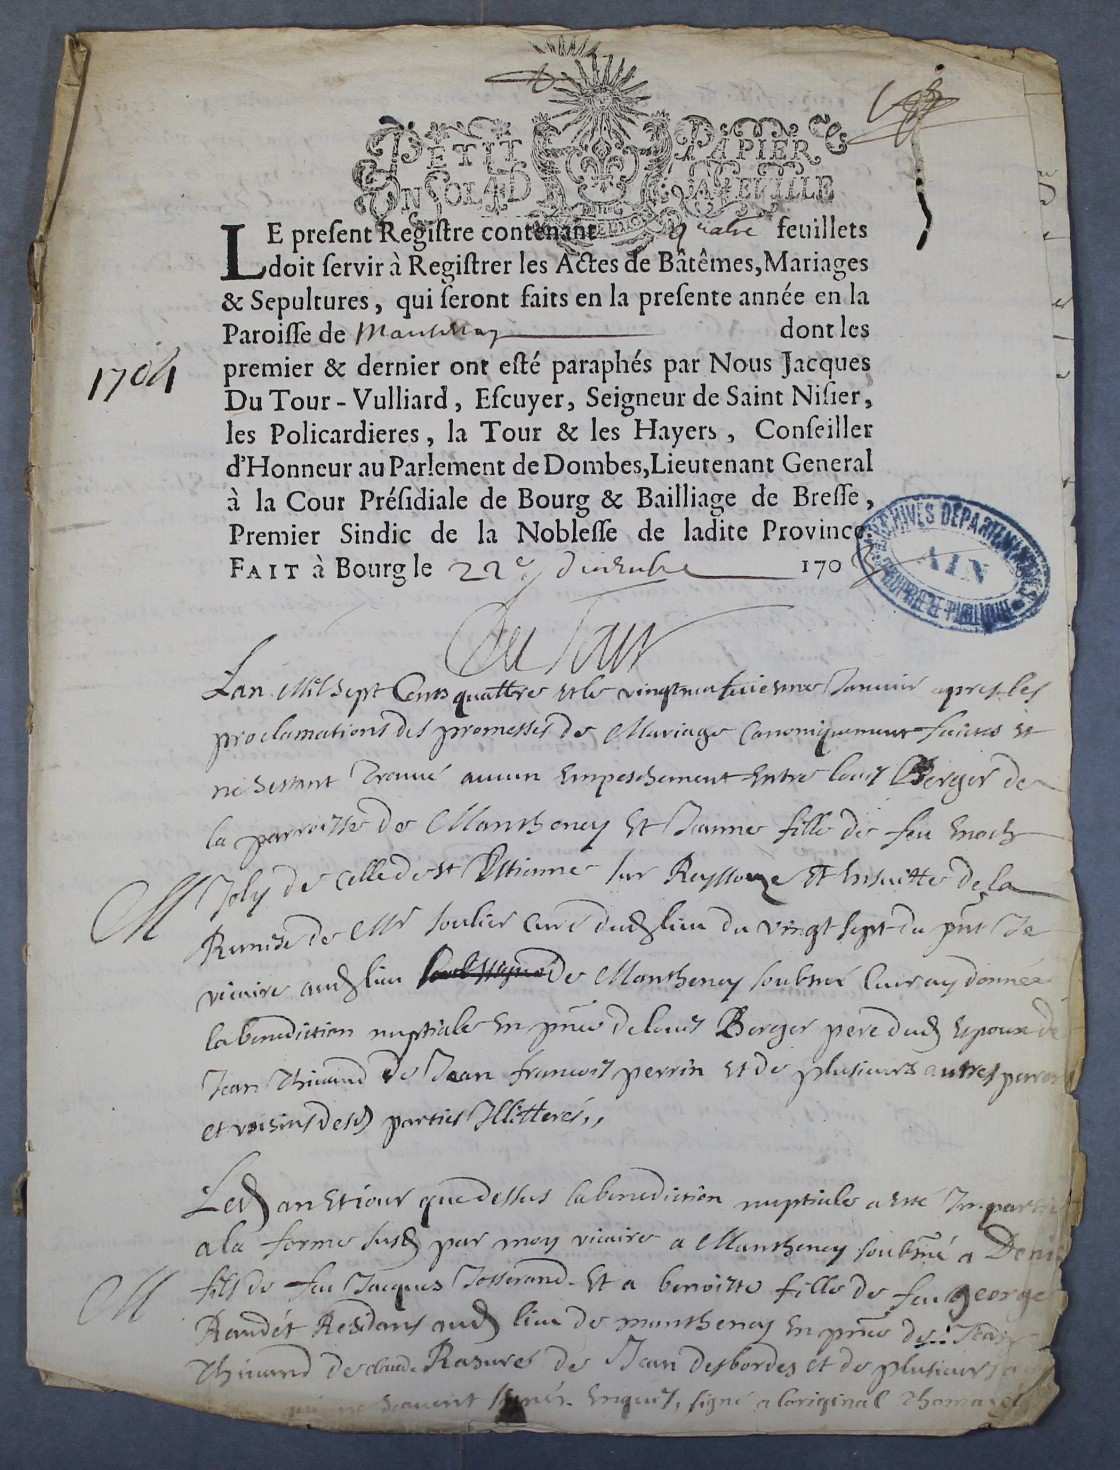 PETIT PAPIER
UN SOL LAD FEUILLE
LE preſent Regiſtre contenant quatre feuillets
doit ſervir à Regiſtrer les Actes de Bâtêmes, Mariages
& Sepultures, qui ſeront faits en la preſente année en la
Paroiſſe de Mantenay dont les
1704
premier & dernier ont eſté paraphés par Nous Jacques
Du Tour-Vulliard, Eſcuyer, Seigneur de Saint Niſier,
les Policardieres, la Tour & les Hayers, Conſeiller
d'Honneur au Parlement de Dombes, Lieutenant General
à la Cour Préſidiale de Bourg & Bailliage de Breſſe,
Premier Sindic de la Nobleſſe de ladite Province.
FAIT à Bourg le 22e decembre 170
ARCHIVES DEPARTEMENTALES
AIN
PROPRIETE PUBLIQUE
Du Tour
Lan Mil Sept Cents quattre et le vingtneufuiesme Januier apres les
proclamations des promesses de Mariage Canoniquement faictes et
ne sestant Trouué aucun Empeschement Entre louis Berger de
la parroisse de Manthenay Et Jeanne fille de feu Enoch
M
Joly de celle de st Estienne sur Reyssouze Et Ensuitte de la
Remise de Mr soulier Curé dud lieu du vingt sept du pnt Je
vicaire aud lieu de Manthenay soubné leur ay donnée
la benediction nuptiale En pnce de louis Berger pere dud Espoux de
Jean Thiuand de Jean francois perrin et de plusieurs autres
et voisins desd parties Illitterés,,
Led an Et iour que dessus la benediction nuptiale a esté
a la forme susd par moy vicaire a Manthenay soubné a Denis
M
fils de feu Jacques Josserand Et a benoitte fille de feu george
Randét Residans aud lieu de manthenay En pnce de Jean
Thiuand de claude Rasures de Jean desbordes et de plusieurs
qui ne scauent signer Enquis, signé a loriginal Thomasset